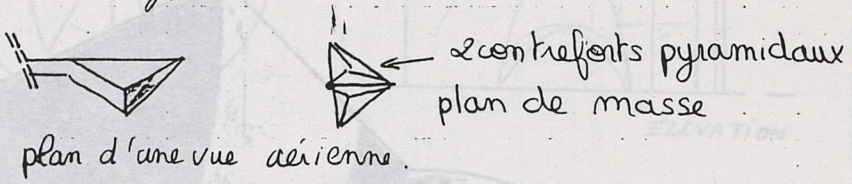 2 contreforts pyramidaux
plan de masse
ELEVATION
plan d'une vue aérienne.